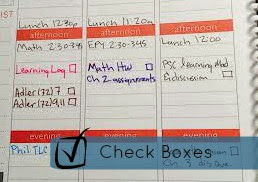 LIST
Lunch 12:30p
Lunch 11:20a
afternoon
afternoon
afternoon
Math 2:30-3:45
EPY 2:30-3:45
Lunch 12:00
Learning Log
Math Hw
Ch 2 assignments
PSC Learning Mod
E discussion
Adler (72) 7
Adler (72) 9, 11
evening
evening
evening
Phil TLC
Check Boxes